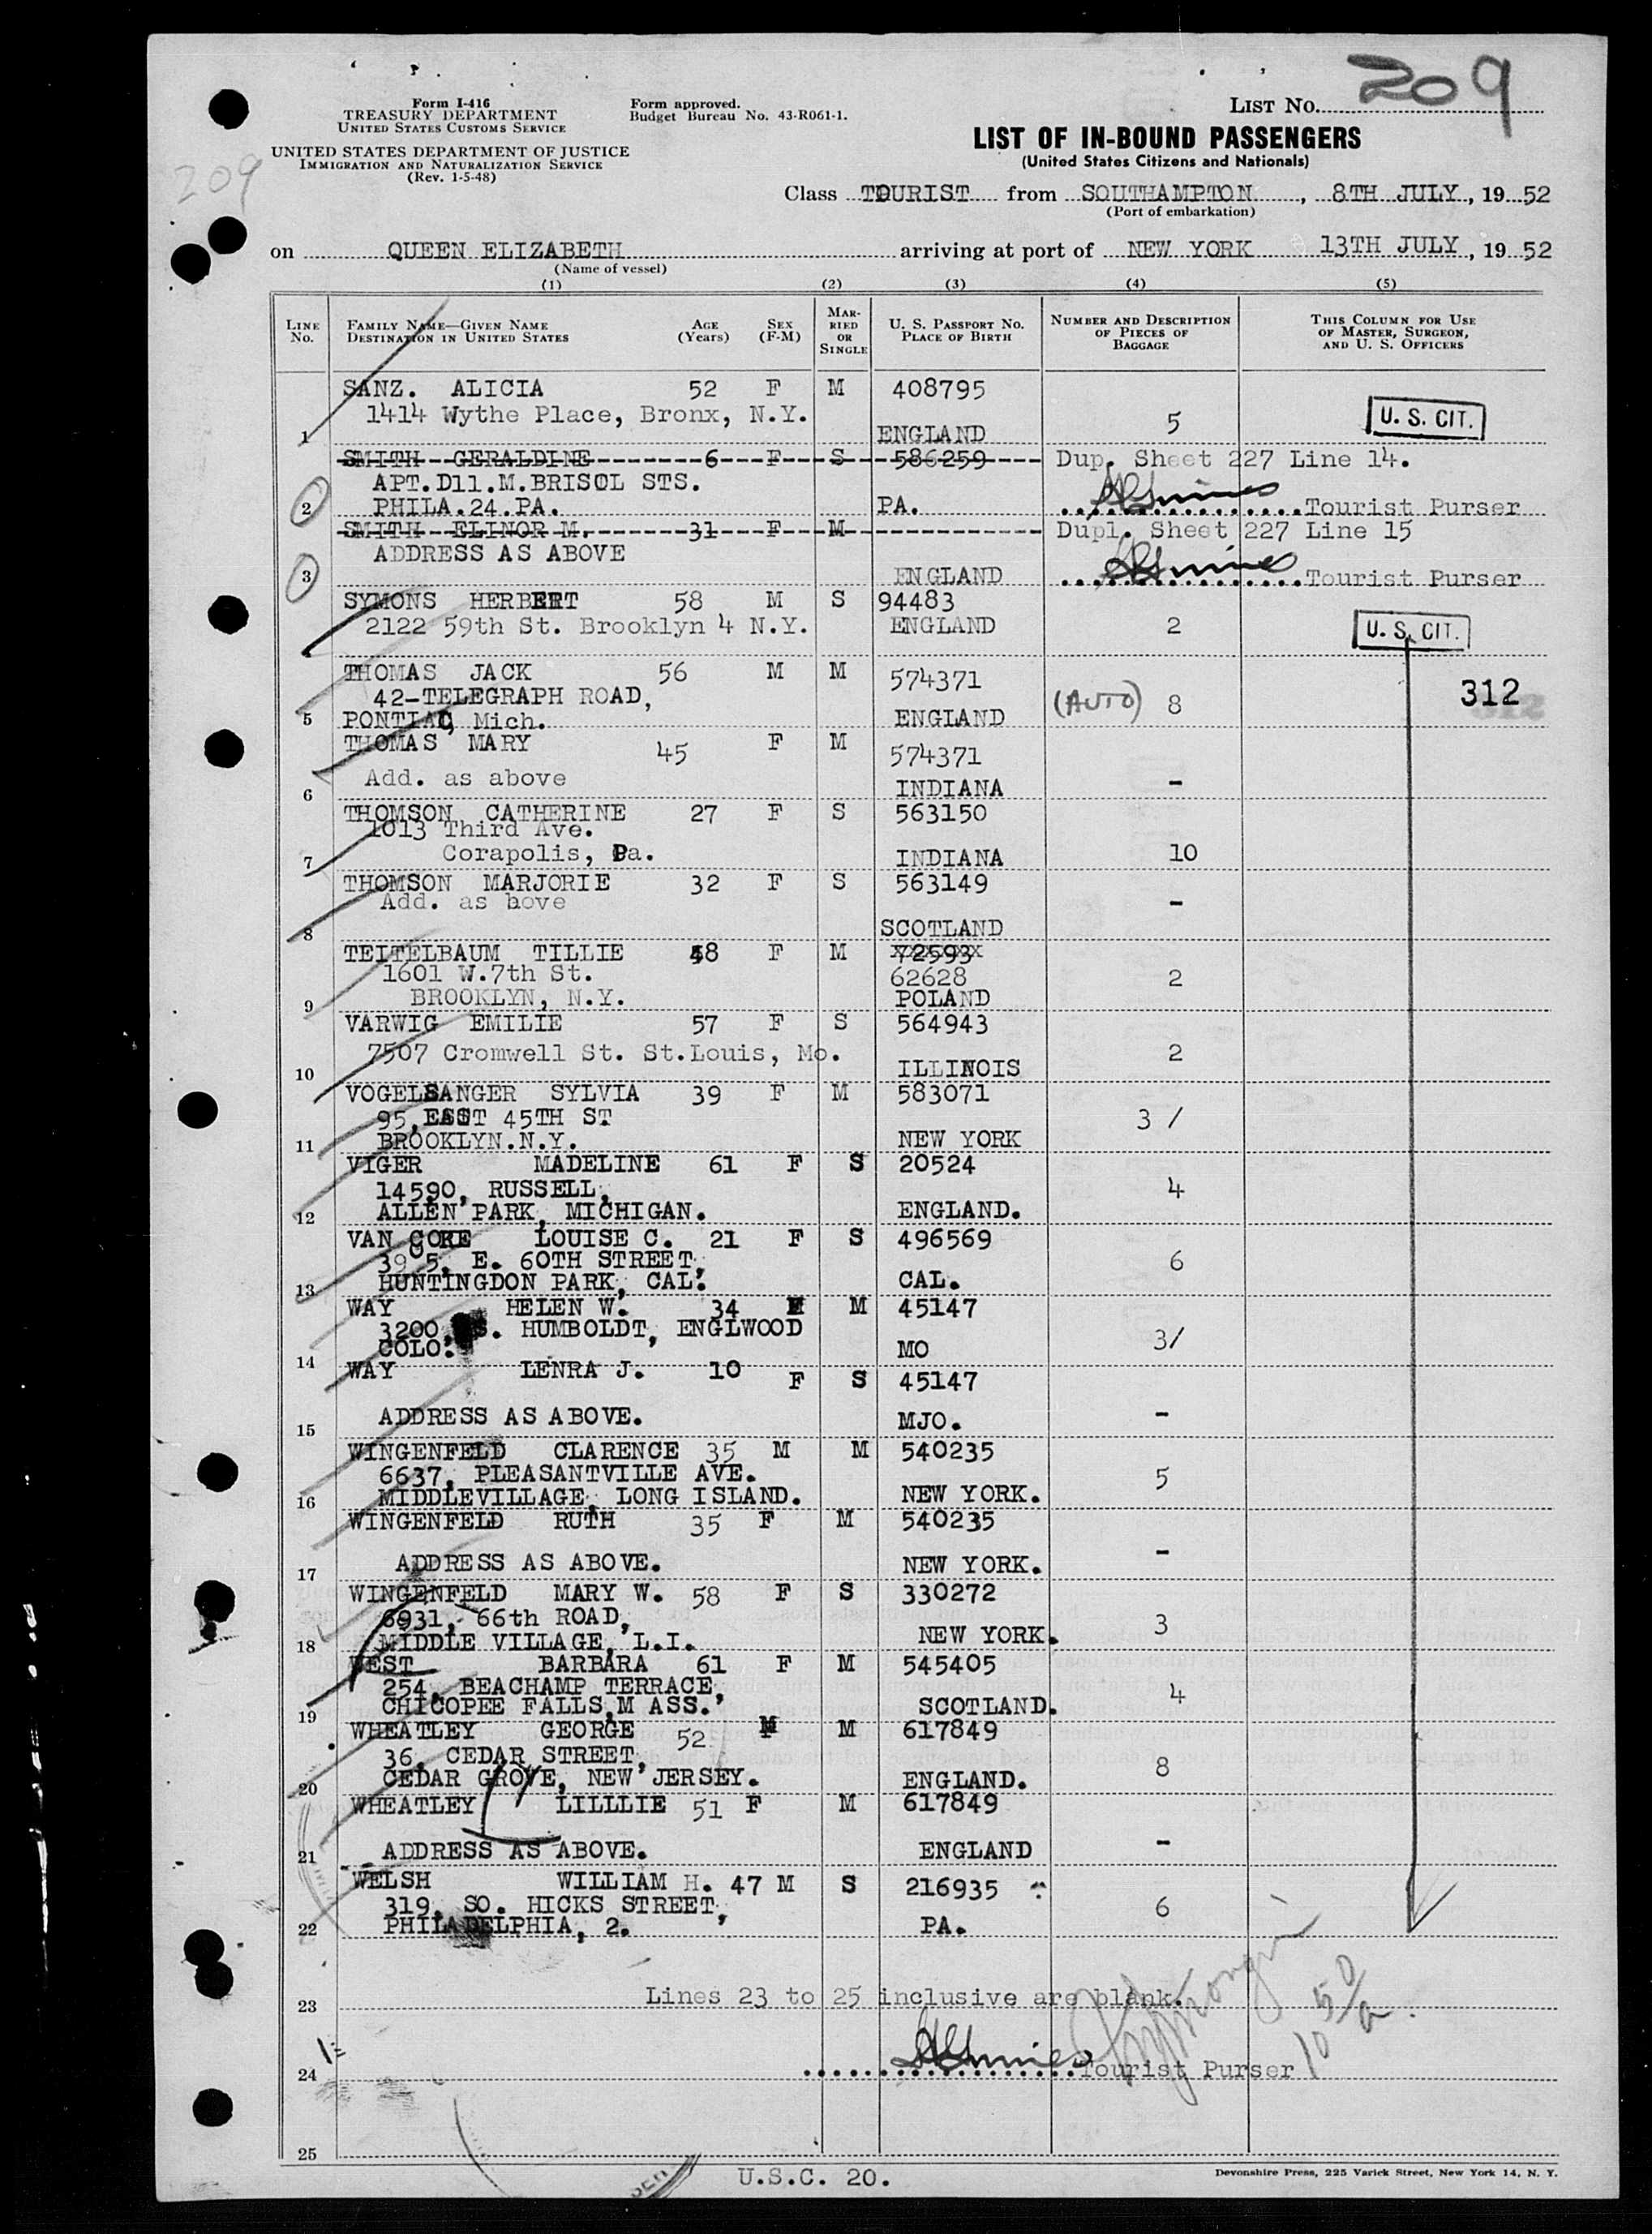 209
Form I-416
TREASURY DEPARTMENT
UNITED STATES CUSTOMS SERVICE
UNITED STATES DEPARTMENT OF JUSTICE
IMMIGRATION AND NATURALIZATION SERVICE
(Rev. 1-5-48)
Form approved.
Budget Bureau No. 43-R061-1.
LIST NO. 209
LIST OF IN-BOUND PASSENGERS
(United States Citizens and Nationals)
Class TOURIST from SOUTHAMPTON, 8TH JULY, 1952
(Port of embarkation)
on QUEEN ELIZABETH arriving at port of NEW YORK 13TH JULY, 1952
(Name of vessel)
(1) (2) (3) (4) (5)
LINE NO.
FAMILY NAME—GIVEN NAME
DESTINATION IN UNITED STATES
AGE (Years)
SEX (F-M)
MARRIED OR SINGLE
U. S. PASSPORT NO.
PLACE OF BIRTH
NUMBER AND DESCRIPTION OF PIECES OF BAGGAGE
THIS COLUMN FOR USE OF MASTER, SURGEON, AND U. S. OFFICERS
SANZ. ALICIA 52 F M 408795
1414 Wythe Place, Bronx, N.Y. 5 U. S. CIT.
1 ENGLAND
SMITH GERALDINE 6 F S 586259 Dup. Sheet 227 Line 14.
APT.D11.M.BRISOL STS.
2 PHILA.24.PA. PA. Tourist Purser
SMITH ELINOR M. 31 F M Dupl. Sheet 227 Line 15
ADDRESS AS ABOVE
3 ENGLAND Tourist Purser
SYMONS HERBERT 58 M S 94483
2122 59th St. Brooklyn 4 N.Y. ENGLAND 2 U. S. CIT.
THOMAS JACK 56 M M 574371
42-TELEGRAPH ROAD, (AUTO) 8 312
5 PONTIAC, Mich. ENGLAND
THOMAS MARY 45 F M 574371
Add. as above
6 INDIANA -
THOMSON CATHERINE 27 F S 563150
1013 Third Ave.
7 Corapolis, Pa. INDIANA 10
THOMSON MARJORIE 32 F S 563149
Add. as bove -
8 SCOTLAND
TEITELBAUM TILLIE 48 F M 72593
1601 W.7th St. 62628 2
9 BROOKLYN, N.Y. POLAND
VARWIG EMILIE 57 F S 564943
7507 Cromwell St. St.Louis, Mo. 2
10 ILLINOIS
VOGELSANGER SYLVIA 39 F M 583071
95,EAST 45TH ST 3 /
11 BROOKLYN.N.Y. NEW YORK
VIGER MADELINE 61 F S 20524
14590, RUSSELL, 4
12 ALLEN PARK, MICHIGAN. ENGLAND.
VAN GORE LOUISE C. 21 F S 496569
3905, E. 60TH STREET, 6
13 HUNTINGDON PARK, CAL. CAL.
WAY HELEN W. 34 F M 45147
3200, S. HUMBOLDT, ENGLWOOD 3/
14 COLO. MO
WAY LENRA J. 10 F S 45147
15 ADDRESS AS ABOVE. MJO. -
WINGENFELD CLARENCE 35 M M 540235
6637, PLEASANTVILLE AVE. 5
16 MIDDLEVILLAGE, LONG ISLAND. NEW YORK.
WINGENFELD RUTH 35 F M 540235
17 ADDRESS AS ABOVE. NEW YORK. -
WINGENFELD MARY W. 58 F S 330272
6931, 66th ROAD, 3
18 MIDDLE VILLAGE, L.I. NEW YORK.
WEST BARBARA 61 F M 545405
254, BEACHAMP TERRACE, 4
19 CHICOPEE FALLS,M ASS. SCOTLAND.
WHEATLEY GEORGE 52 M M 617849
36, CEDAR STREET, 8
20 CEDAR GROVE, NEW JERSEY. ENGLAND.
WHEATLEY LILLLIE 51 F M 617849
21 ADDRESS AS ABOVE. ENGLAND -
WELSH WILLIAM H. 47 M S 216935
319, SO. HICKS STREET, 6
22 PHILADELPHIA, 2. PA.
23 Lines 23 to 25 inclusive are blank.
24 Tourist Purser
25
U.S.C. 20.
Devonshire Press, 225 Varick Street, New York 14, N. Y.